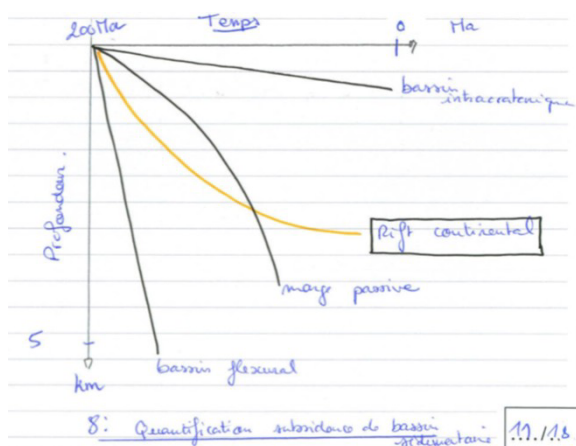 200Ma
Temps
0
Ma
bassin
intracratonique
Profondeur.
Rift continental
marge passive
5
bassin flexural
km
8: Quantification subsidence de bassin
sédimentaire
11./18